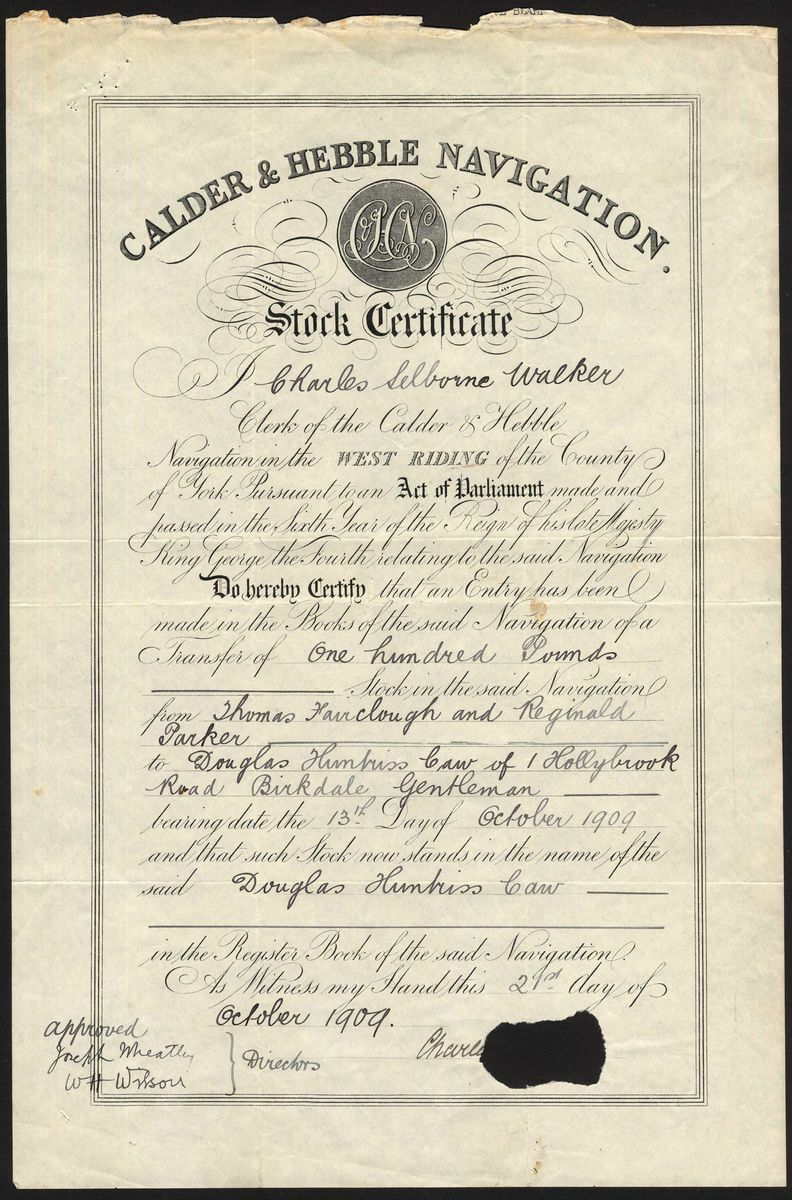 CALDER & HEBBLE NAVIGATION.
Stock Certificate
I Charles Selborne Walker
Clerk of the Calder & Hebble
Navigation in the WEST RIDING of the County
of York Pursuant to an Act of Parliament made and
passed in the Sixth Year of the Reign of his late Majesty
King George the Fourth relating to the said Navigation
Do hereby Certify that an Entry has been
made in the Books of the said Navigation of a
Transfer of One hundred Pounds
Stock in the said Navigation
from Thomas Fairclough and Reginald
Parker
to Douglas Huntriss Caw of 1 Hollybrook
Road Birkdale Gentleman
bearing date the 13th Day of October 1909
and that such Stock now stands in the name of the
said Douglas Huntriss Caw
in the Register Book of the said Navigation.
As Witness my Hand this 21st day of
October 1909.
approved
Joseph Wheatley
WH Wilson
Directors
Charles